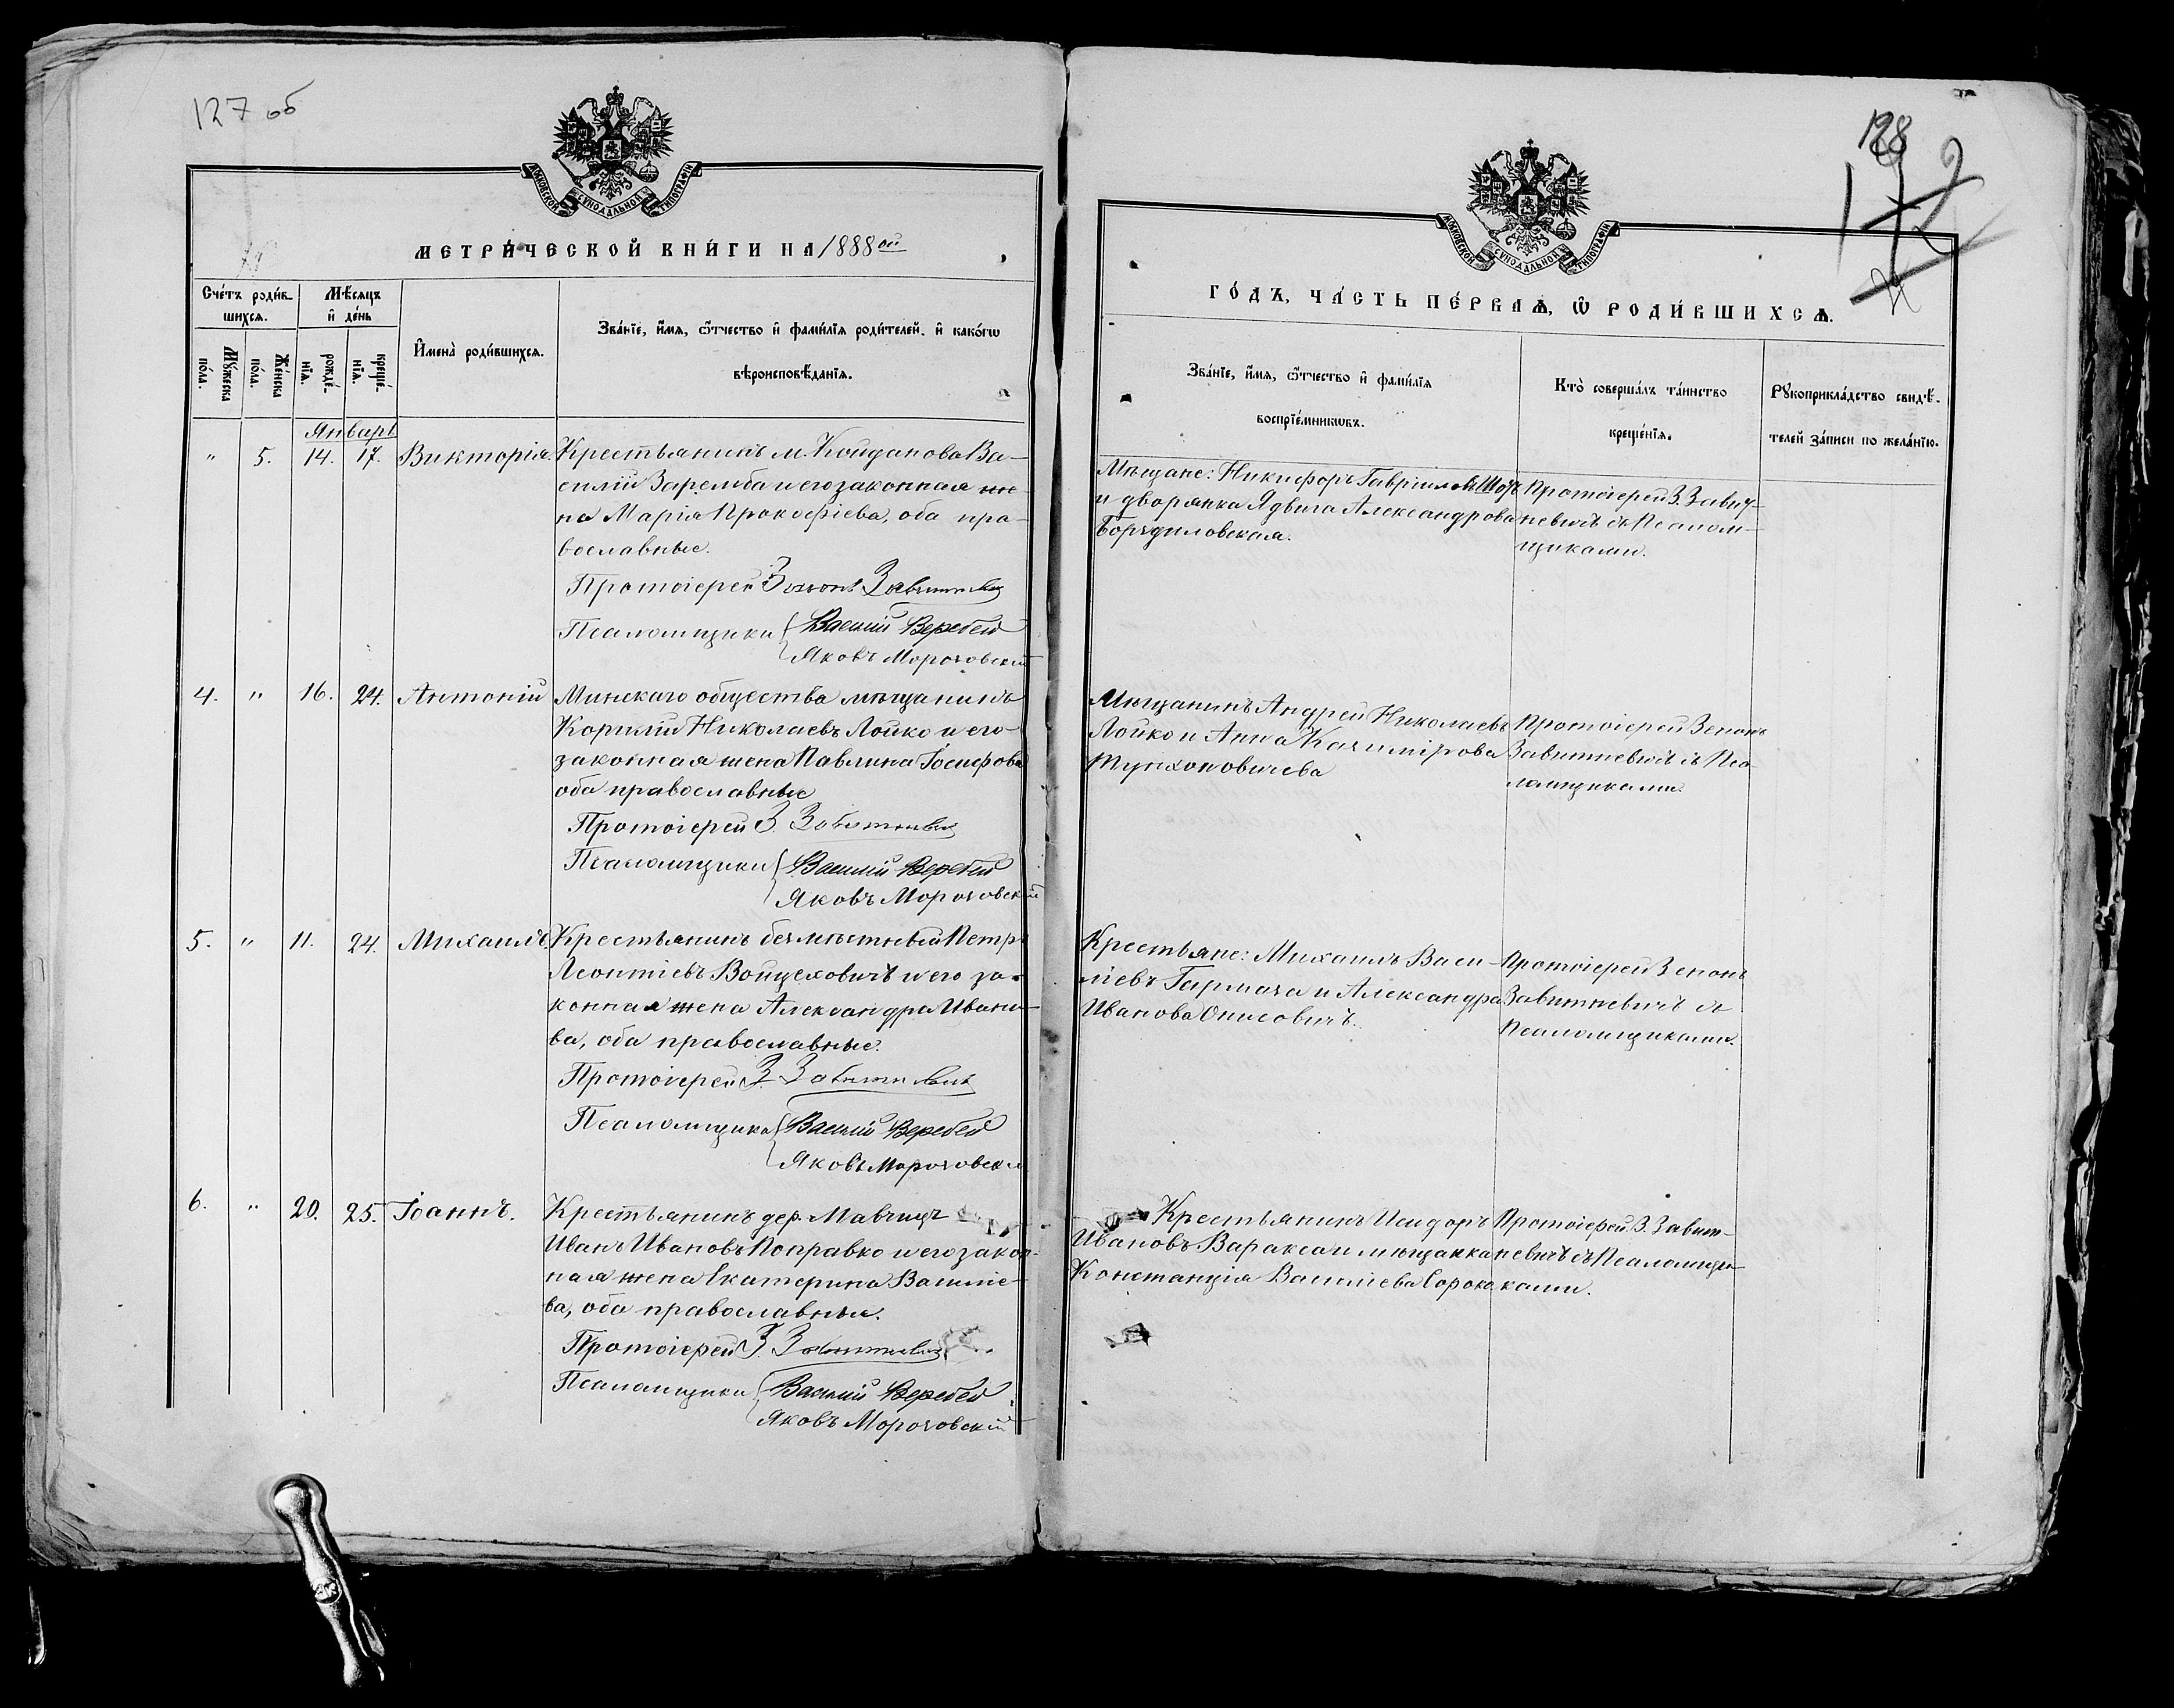 127 об
МОСКОВСКОЙ СѴНОДАЛЬНОЙ ТИПОГРАФІИ
МЕТРИ́ЧЕСКОЙ КНИ́ГИ НА 1888ой
Сче́тъ роди́вшихсѧ.
Мꙋ́жеска по́ла.
Же́нска по́ла.
Мѣ́сяцъ и҆ де́нь
рожде́нїѧ.
креще́нїѧ.
И҆мена̀ роди́вшихсѧ.
Зва́нїе, и҆́мѧ, ѻ҆́тчество и҆ фами́лїѧ роди́телей. и҆ како́гѡ
вѣроисповѣ́данїѧ.
Январь
" 5. 14. 17. Викторія. Крестьянинъ м. Койданова Ва-
силій Заремба и его законная же-
на Марія Прокофіева, оба пра-
вославные.
Протоіерей Зенонъ Завитневичъ
Псаломщики Василій Веребей
Яковъ Мороховскій
4. " 16. 24. Антоній Минскаго общества мѣщанинъ
Корнилій Николаевъ Лойко и его
законная жена Павлина Іосифова
оба православные
Протоіерей З. Завитневичъ
Псаломщики Василій Веребей
Яковъ Мороховскій
5. " 11. 24. Михаилъ. Крестьянинъ безмѣстный Петръ
Леонтіевъ Войцеховичъ и его за-
конная жена Александра Ивано-
ва, оба православные.
Протоіерей З. Завитневичъ
Псаломщики Василій Веребей
Яковъ Мороховскій
6. " 20. 25. Іоаннъ. Крестьянинъ дер. Мавчицъ
Иванъ Ивановъ Поправко и его закон-
ная жена Екатерина Василіе-
ва, оба православные.
Протоіерей З. Завитневичъ
Псаломщики Василій Веребей
Яковъ Мороховскій
128
МОСКОВСКОЙ СѴНОДАЛЬНОЙ ТИПОГРАФІИ
ГО́ДЪ, ЧА́СТЬ ПЕ́РВАѦ, Ѡ҆ РОДИ́ВШИХСѦ.
Зва́нїе, и҆́мѧ, ѻ҆́тчество и҆ фами́лїѧ
воспрїе́мникѡвъ.
Кто̀ соверша́лъ та́инство
креще́нїѧ.
Рꙋкоприкла́дство свидѣ́-
телей за́писи по жела́нїю.
Мѣщане: Никифоръ Гавріиловъ
и дворянка Ядвига Александрова
Протоіерей З. Завит-
невичъ съ Псалом-
щиками.
Мѣщанинъ Андрей Николаевъ
Лойко и Анна Казимірова
Протоіерей Зенонъ
Завитневичъ съ Пса-
ломщиками.
Крестьяне: Михаилъ Васи-
ліевъ Гармаза и Александра
Иванова Онисовичъ.
Протоіерей Зенонъ
Завитневичъ съ
Псаломщиками.
Крестьянинъ Исидоръ
Ивановъ Варакса и мѣщанка
Констанція Василіева Сорока
Протоіерей З. Завит-
невичъ съ Псаломщи-
ками.